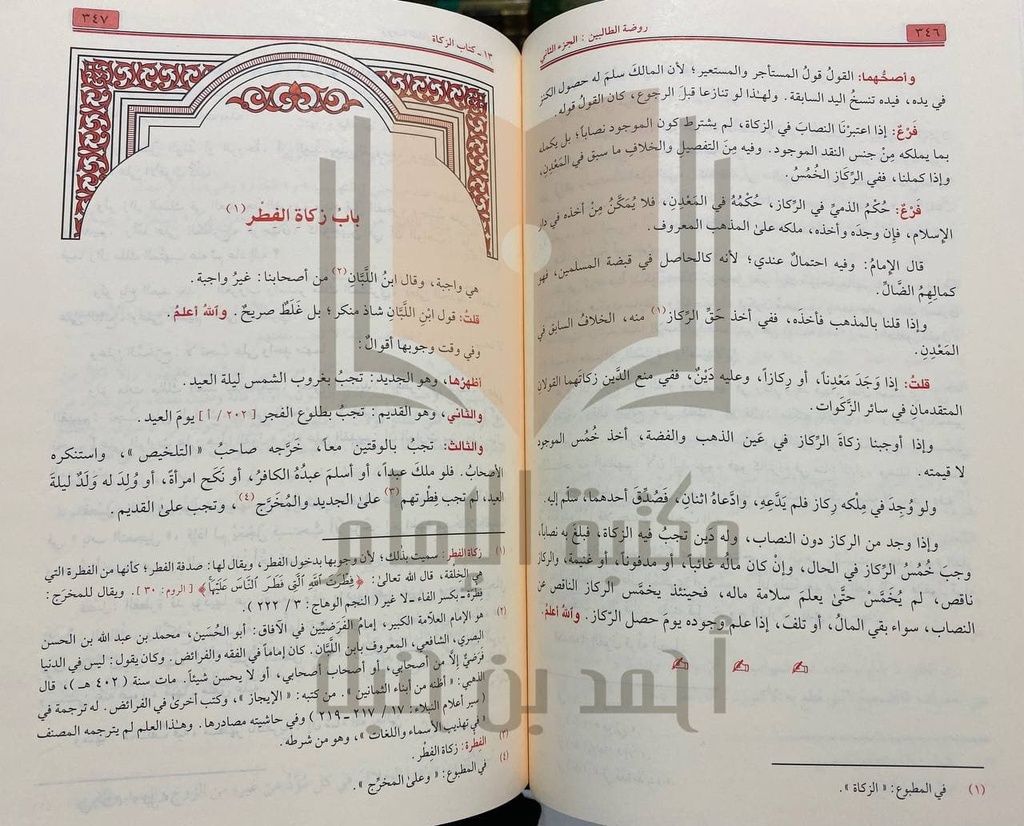 ٣٤٦
روضة الطالبين : الجزء الثاني
وأصحُّهما: القولُ قولُ المستأجر والمستعير؛ لأن المالك سلم له حصول الكنز
في يده، فيده تنسخُ اليد السابقة. ولهذا لو تنازعا قبلَ الرجوع، كان القولُ قوله.
فَرْعٌ: إذا اعتبرْنَا النصابَ في الزكاة، لم يشترط كون الموجود نصاباً؛ بل يكمله
بما يملكه مِنْ جنس النقد الموجود. وفيه مِنَ التفصيلِ والخلافِ ما سبق في المَعْدِنِ،
وإذا كملنا، ففي الرِّكاز الخُمُسُ.
فَرْعٌ: حُكْمُ الذميِّ في الرِّكاز، حُكْمُهُ في المَعْدِنِ، فلا يُمَكَّنُ مِنْ أخذه في دار
الإسلام، فإن وجدَه وأخذه، ملكه على المذهب المعروف.
قال الإمامُ: وفيه احتمالٌ عندي؛ لأنه كالحاصل في قبضة المسلمين، فهو
كمالِهِمُ الضَّالِّ.
وإذا قلنا بالمذهب فأخذه، ففي أخذ حَقِّ الرِّكاز(١) منه، الخلافُ السابق في
المَعْدِنِ.
قلتُ: إذا وَجَدَ مَعْدِناً، أو رِكازاً، وعليه دَيْنٌ، ففي منع الدَّين زكاتَهما القولان
المتقدمانِ في سائر الزَّكَوات.
وإذا أوجبنا زكاةَ الرِّكاز في عَين الذهب والفضة، أخذ خُمُس الموجود
لا قيمته.
ولو وُجِدَ في مِلْكه رِكاز فلم يَدَّعِهِ، وادَّعاهُ اثنانِ، فَصُدِّقَ أحدهما، سلّم إليه.
وإذا وجد من الركاز دون النصاب، وله دَين تجبُ فيه الزكاة، فبلغ به نصاباً،
وجبَ خُمُسُ الركاز في الحال، وإنْ كان مالُه غائباً، أو مدفوناً، أو غنيمة، والركاز
ناقص، لم يُخَمَّسْ حتَّى يعلمَ سلامة ماله، فحينئذ يخمَّس الركاز الناقص عن
النصاب، سواء بقي المالُ، أو تلفَ، إذا علم وجوده يومَ حصل الرِّكاز. واللهُ أعلمُ.
(١) في المطبوع: « الزكاة ».
١٣ - كتاب الزكاة
٣٤٧
بابُ زكاةِ الفطْر(١)
هي واجبة، وقال ابنُ اللَّبَّانِ(٢) من أصحابنا: غيرُ واجبة.
قلتُ: قول ابْنِ اللَّبَّانِ شاذ منكر؛ بل غَلَطٌ صريحٌ. واللهُ أعلمُ.
وفي وقت وجوبها أقوالٌ:
أظهرُها، وهو الجديد: تجبُ بغروب الشمس ليلة العيد.
والثاني، وهو القديم: تجبُ بطلوع الفجر [ ٢٠٢ / أ ] يومَ العيد.
والثالث: تجبُ بالوقتين معاً، خَرَّجه صاحبُ « التلخيص »، واستنكره
الأصحابُ. فلو ملكَ عبداً، أو أسلمَ عبدُهُ الكافرُ، أو نَكَح امرأةً، أو وُلِدَ له وَلَدٌ ليلةَ
العيد، لم تجب فِطْرتهم(٣) على الجديد والمُخَرَّج(٤)، وتجب على القديم.
(١) زكاة الفطر: سميت بذلك؛ لأن وجوبها بدخول الفطر، ويقال لها: صدقة الفطر؛ كأنها من الفطرة التي
هي الخلقة، قال الله تعالى: ﴿ فِطْرَتَ ٱللَّهِ ٱلَّتِى فَطَرَ ٱلنَّاسَ عَلَيْهَا ﴾ [ الروم : ٣٠ ]. ويقال للمخرَج:
فِطرة ـ بكسر الفاء ـ لا غير ( النجم الوهاج : ٣ / ٢٢٢ ).
(٢) هو الإمام العلّامة الكبير، إمامُ الفَرَضيِّين في الآفاق: أبو الحُسَين، محمد بن عبد الله بن الحسن
البصري، الشافعي، المعروف بابن اللَّبان. كان إماماً في الفقه والفرائض. وكان يقول: ليس في الدنيا
فَرَضيٌّ إلَّا من أصحابي، أو أصحاب أصحابي، أو لا يحسن شيئاً. مات سنة ( ٤٠٢ هـ )، قال
الذهبي: « أظنه من أبناء الثمانين ». من كتبه: « الإيجاز »، وكتب أخرىٰ في الفرائض. له ترجمة في
( سير أعلام النبلاء: ١٧ / ٢١٧ - ٢١٩ ) وفي حاشيته مصادرها. وهذا العلم لم يترجمه المصنف
في « تهذيب الأسماء واللغات »، وهو من شرطه.
(٣) الفِطرة: زكاة الفِطر.
(٤) في المطبوع: « وعلى المخرَّج ».
مكتبة الإمام
أحمد بن حنبل